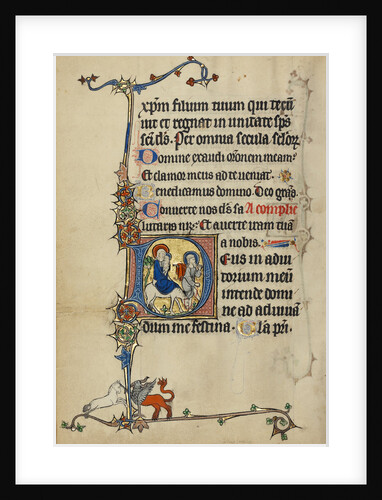 xp̄m filium tuum qui tecū
uiuit et regnat in unitate sp̄s
sc̄i d̄s. Per omnia secula sc̄lor̄.
Domine exaudi or̄onem meam.
Et clamor meus ad te ueniat.
Benedicamus domino. Deo gr̄as.
Conuerte nos d̄s sa A complie
lutaris nr̄. Et auerte iram tuā
a nobis.
Deus in adiu
torium meū
intende domi
ne ad adiuuan
dum me festina. Gl̄a pr̄i.